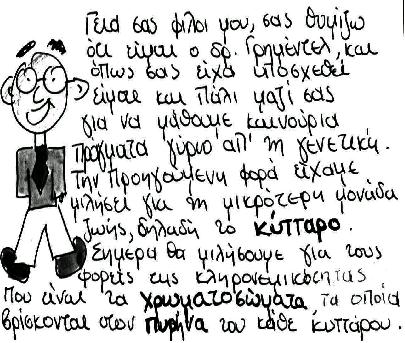 Γειά σας φίλοι μου, σας θυμίζω
ότι είμαι ο δρ. Γρημέντελ, και
όπως σας είχα υποσχεθεί
είμαι και πάλι μαζί σας
για να μάθουμε καινούρια
πράγματα γύρω απ' τη γενετική.
Την προηγούμενη φορά είχαμε
μιλήσει για τη μικρότερη μονάδα
ζωής, δηλαδή το κύτταρο.
Σήμερα θα μιλήσουμε για τους
φορείς της κληρονομικότητας
που είναι τα χρωματοσώματα τα οποία
βρίσκονται στον πυρήνα του κάθε κυττάρου.